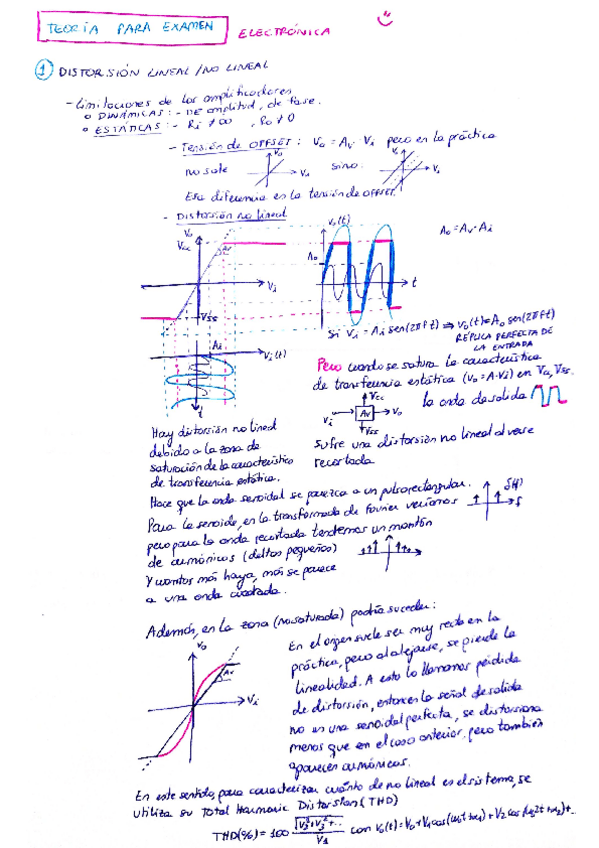 TEORÍA PARA EXAMEN ELECTRÓNICA
1 DISTORSIÓN LINEAL / NO LINEAL
- Limitaciones de los amplificadores
o DINÁMICAS: - DE amplitud, de fase.
o ESTÁTICAS: - Ri ≠ ∞ , Ro ≠ 0
- Tensión de OFFSET: Vo = Av · Vi pero en la práctica
no sale Vo Vi sino: Vo Vi
Esa diferencia es la tensión de OFFSET.
- Distorsión no lineal
Vo
Vcc
Av
Vi
-Vss
Vo(t)
Ao
t
Ao = Av · Ai
Ai
Vi(t)
t
Si Vi = Ai sen(2πft) ⇒ vo(t) = Ao sen(2πft)
RÉPLICA PERFECTA DE
LA ENTRADA
Pero cuando se satura la característica
de transferencia estática (Vo = A·Vi) en Vcc, Vss.
Vcc
Vi Av Vo
Vss
la onda de salida
sufre una distorsión no lineal al verse
recortada
Hay distorsión no lineal
debido a la zona de
saturación de la característica
de transferencia estática.
Hace que la onda senoidal se parezca a un pulso rectangular.
Para la senoide, en la transformada de Fourier veríamos S(f) f
pero para la onda recortada tendremos un montón
de armónicos (deltas pequeños)
Y cuantos más haya, más se parece
a una onda cuadrada.
Además, en la zona (no saturada) podría suceder:
Vo
Av
Vi
En el origen suele ser muy recto en la
práctica, pero al alejarse, se pierde la
linealidad. A esto lo llamamos pérdida
de distorsión, entonces la señal de salida
no es una senoidal perfecta, se distorsiona
menos que en el caso anterior, pero también
aparecen armónicos.
En este sentido, para caracterizar cuánto de no lineal es el sistema, se
utiliza su Total Harmonic Distorsion (THD)
THD(%) = 100 √(V2² + V3² + ...) / V1 con Vo(t) = Vo + V1 cos(ω0t + α1) + V2 cos(ω02t + α2) + ...